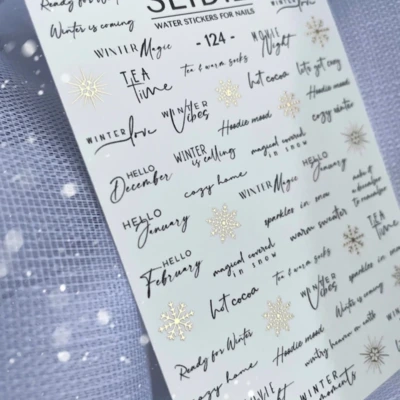 Ready for Winter
WATER STICKERS FOR NAILS
Winter is coming
- 124 -
WINTER Magic
MOVIE Night
WINTER love
TEA Time
Tea & warm socks
hot cocoa
lets get cozy
WINTER love
WINTER Vibes
Hoodie mood
cozy winter
HELLO December
WINTER is calling
magical covered in snow
HELLO January
cozy home
WINTER Magic
HELLO January
sparkles in snow
warm sweater
TEA Time
HELLO February
magical covered in snow
Tea & warm socks
sparkles in snow
hot cocoa
WINTER Vibes
Winter is coming
Ready for Winter
Hoodie mood
cozy home
WINTER moments